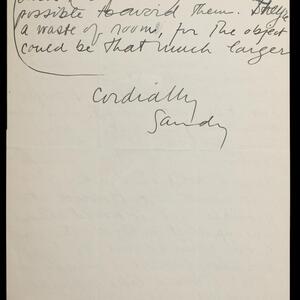 possible to avoid them. They're
a waste of room, for the object
could be that much larger
Cordially
Sandy